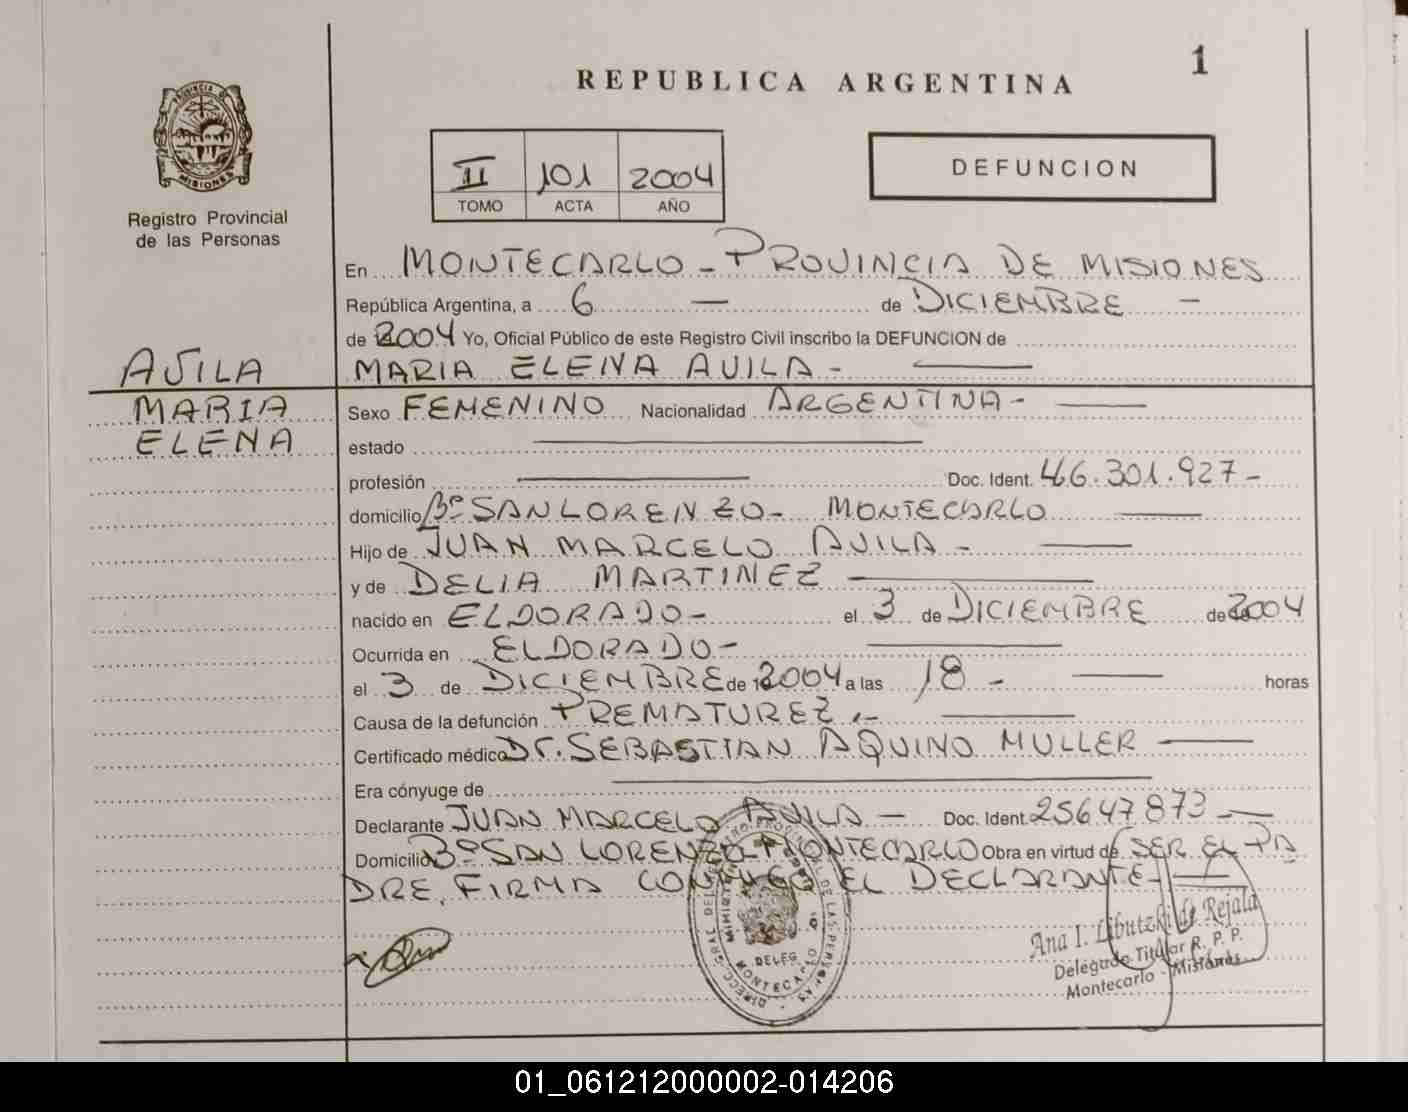 1
REPUBLICA ARGENTINA
PROVINCIA DE
MISIONES
Registro Provincial
de las Personas
II 101 2004
TOMO ACTA AÑO
DEFUNCION
En MONTECARLO - PROVINCIA DE MISIONES
República Argentina, a 6 — de DICIEMBRE —
de 2004 Yo, Oficial Público de este Registro Civil inscribo la DEFUNCION de
AVILA MARIA ELENA AVILA -
MARIA Sexo FEMENINO Nacionalidad ARGENTINA -
ELENA estado
profesión Doc. Ident. 46.301.927-
domicilio Bº SAN LORENZO - MONTECARLO
Hijo de JUAN MARCELO AVILA -
y de DELIA MARTINEZ
nacido en ELDORADO - el 3 de DICIEMBRE de 2004
Ocurrida en ELDORADO -
el 3 de DICIEMBRE de 2004 a las 18 - horas
Causa de la defunción PREMATUREZ.-
Certificado médico Dr. SEBASTIAN AQUINO MULLER
Era cónyuge de
Declarante JUAN MARCELO AVILA — Doc. Ident. 25647873 —
Domicilio Bº SAN LORENZO - MONTECARLO Obra en virtud de SER EL PA
DRE. FIRMA CONMIGO EL DECLARANTE -
DELEG.
MONTECARLO
Ana I. Libutzki de Rejala
Delegado Titular R. P. P.
Montecarlo - Misiones
01_061212000002-014206